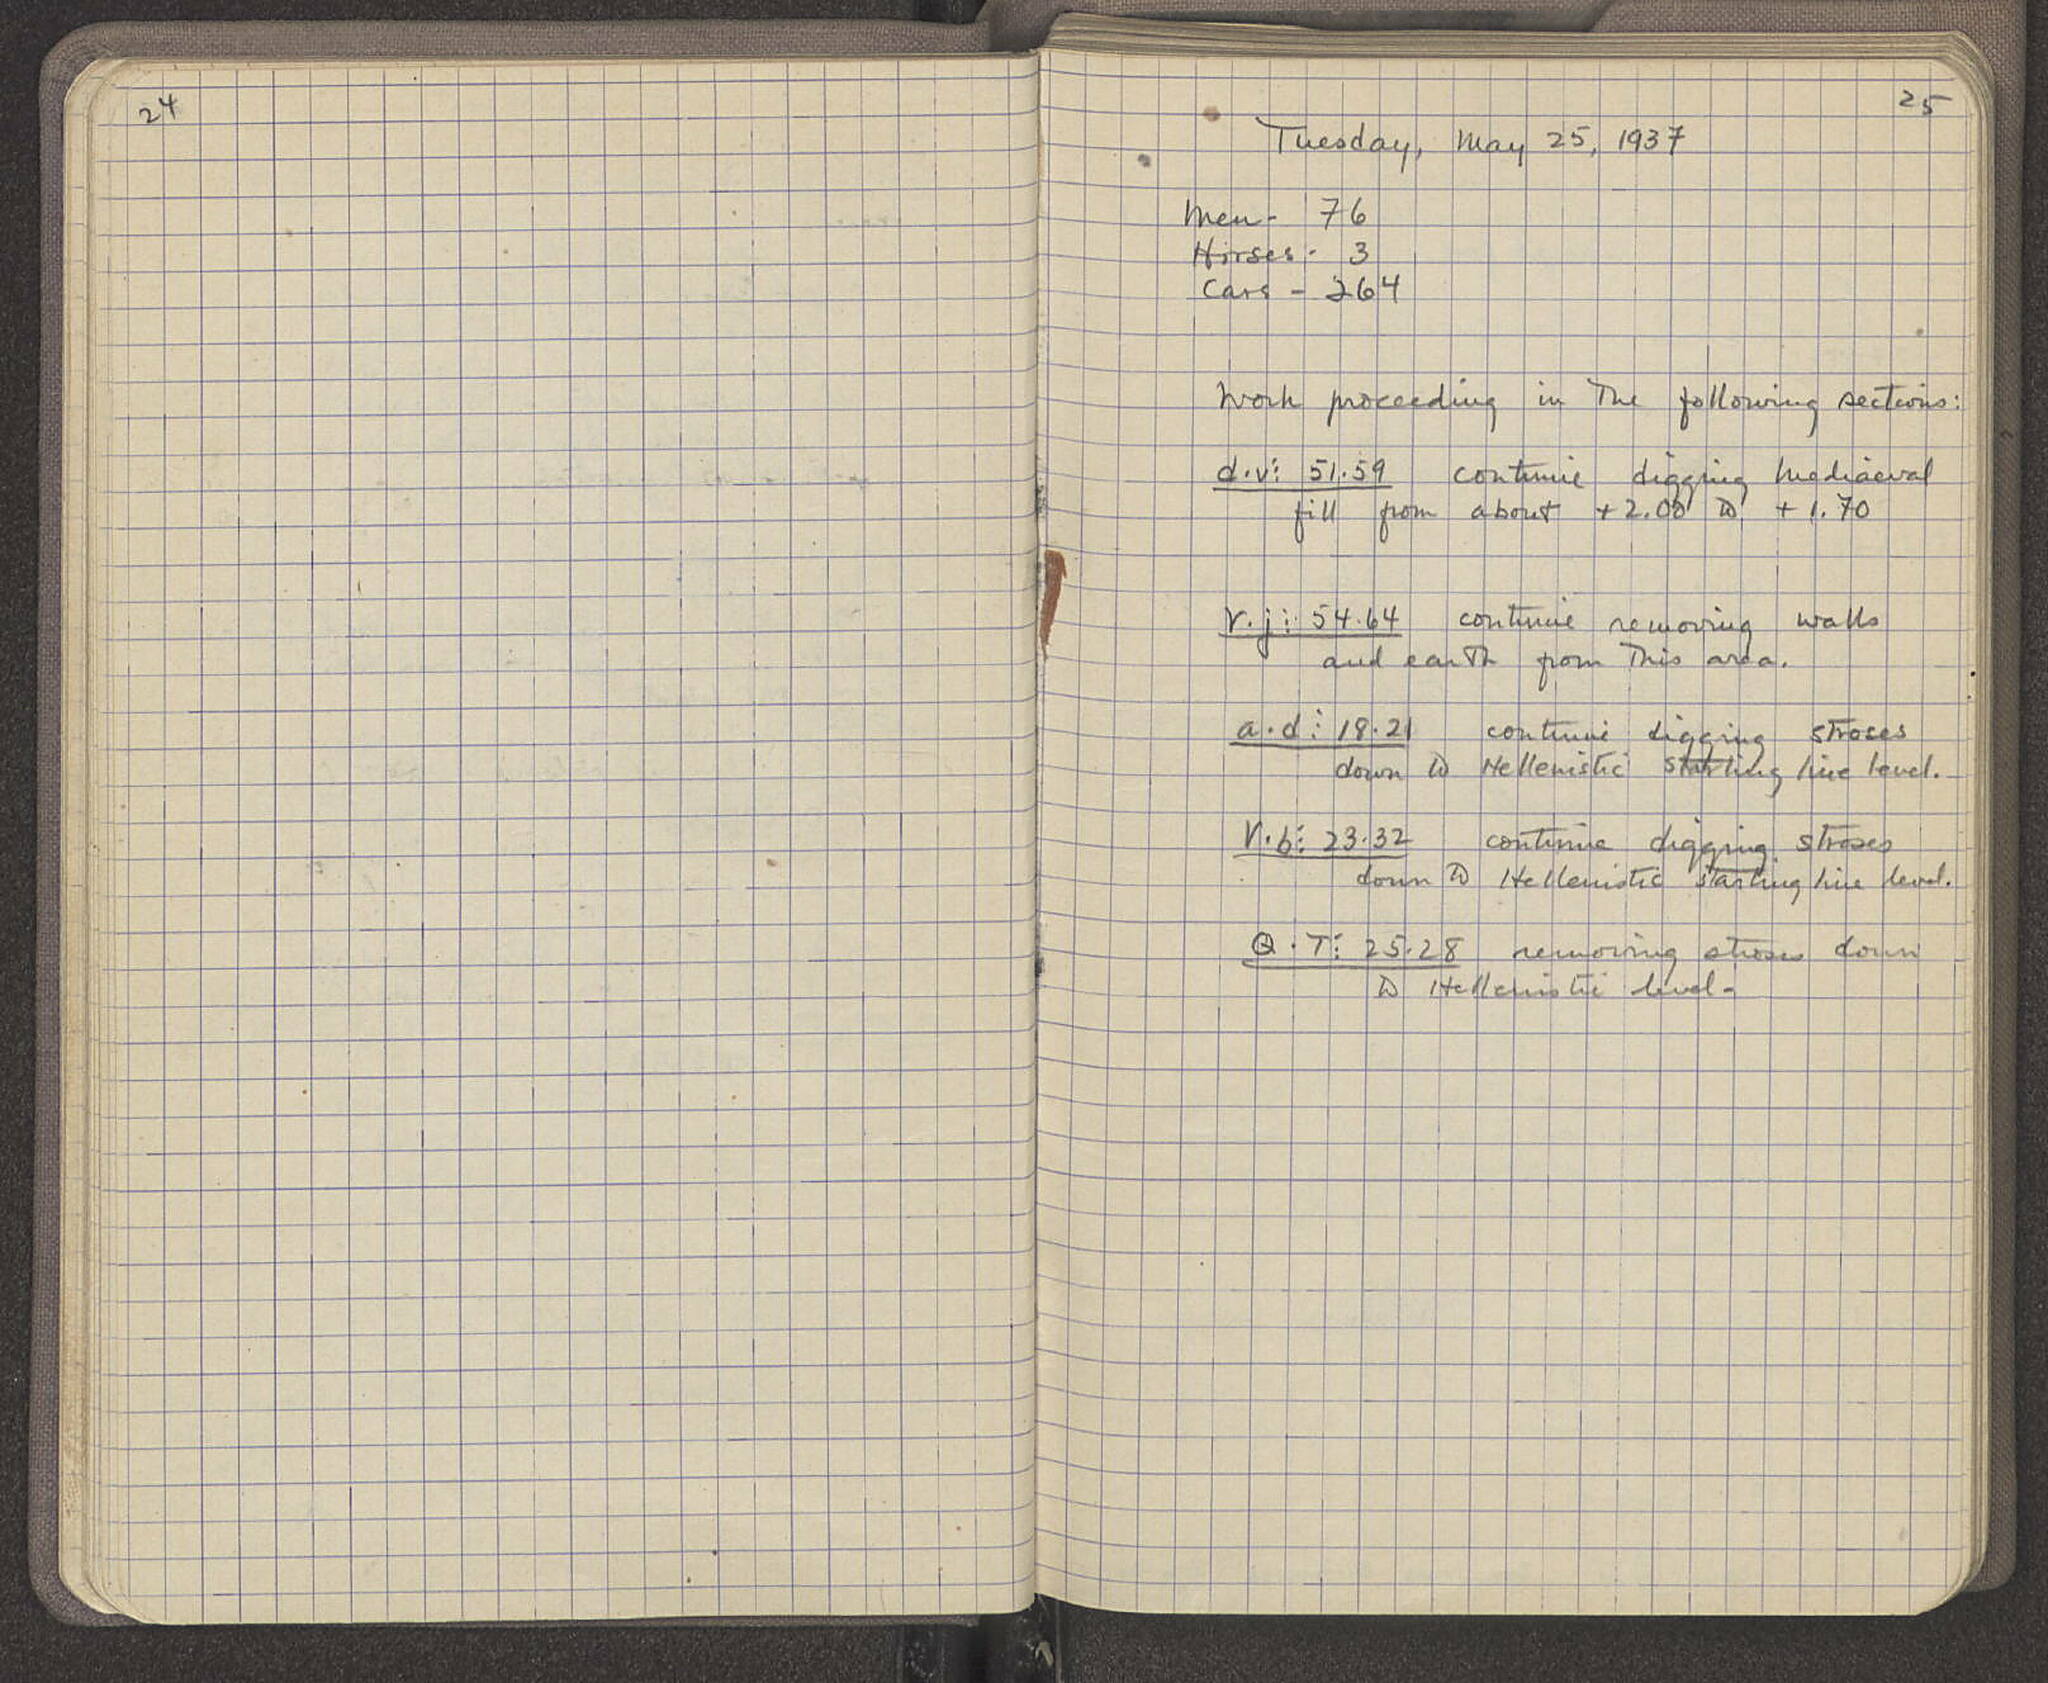 24
25
Tuesday, May 25, 1937
Men - 76
Horses - 3
Cars - 264
Work proceeding in the following sections:
d.v: 51.59 continue digging mediaeval
fill from about +2.00 to +1.70
V.j: 54.64 continue removing walls
and earth from this area.
a.d: 18.21 continue digging stroses
down to Hellenistic starting line level.
V.b: 23.32 continue digging stroses
down to Hellenistic starting line level.
Q.T: 25.28 removing stroses down
to Hellenistic level.